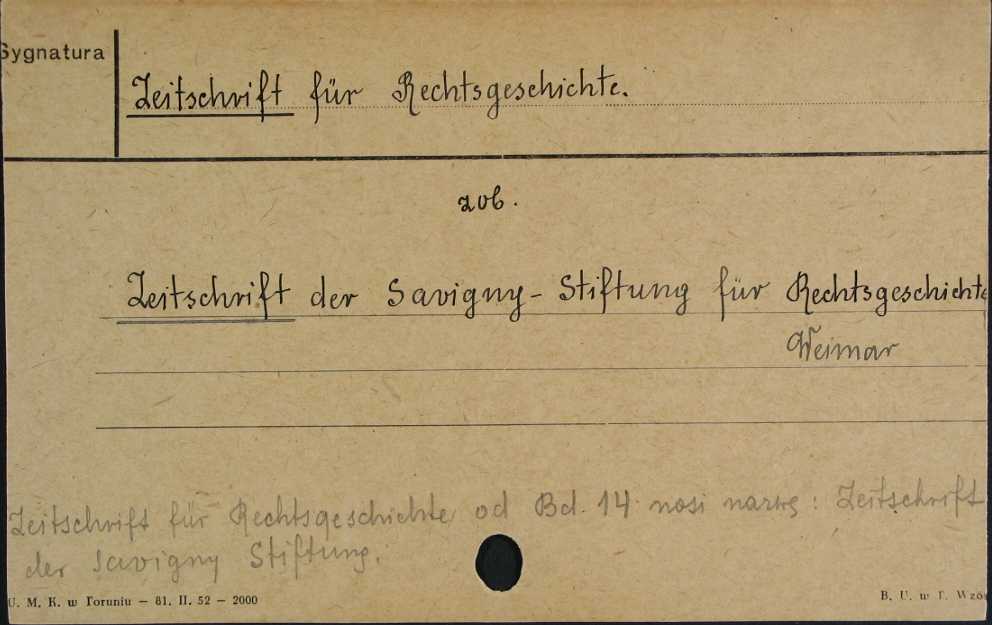 Sygnatura
Zeitschrift für Rechtsgeschichte.
zob.
Zeitschrift der Savigny-Stiftung für Rechtsgeschichte
Weimar
Zeitschrift für Rechtsgeschichte od Bd. 14 nosi nazwę: Zeitschrift
der Savigny Stiftung.
U. M. K. w Toruniu — 81. II. 52 — 2000
B. U. w T. Wzór